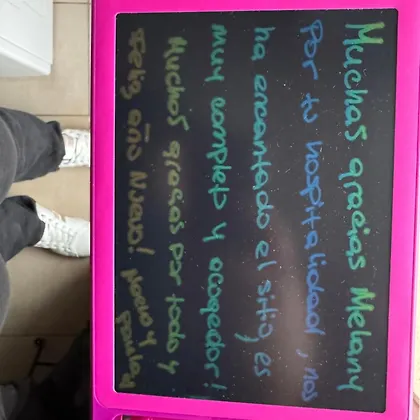 Muchas gracias Melany
Por tu hospitalidad, nos
ha encantado el sitio, es
muy completo y acogedor!
Muchas gracias por todo y
Feliz año Nuevo! Rocio y
Paula